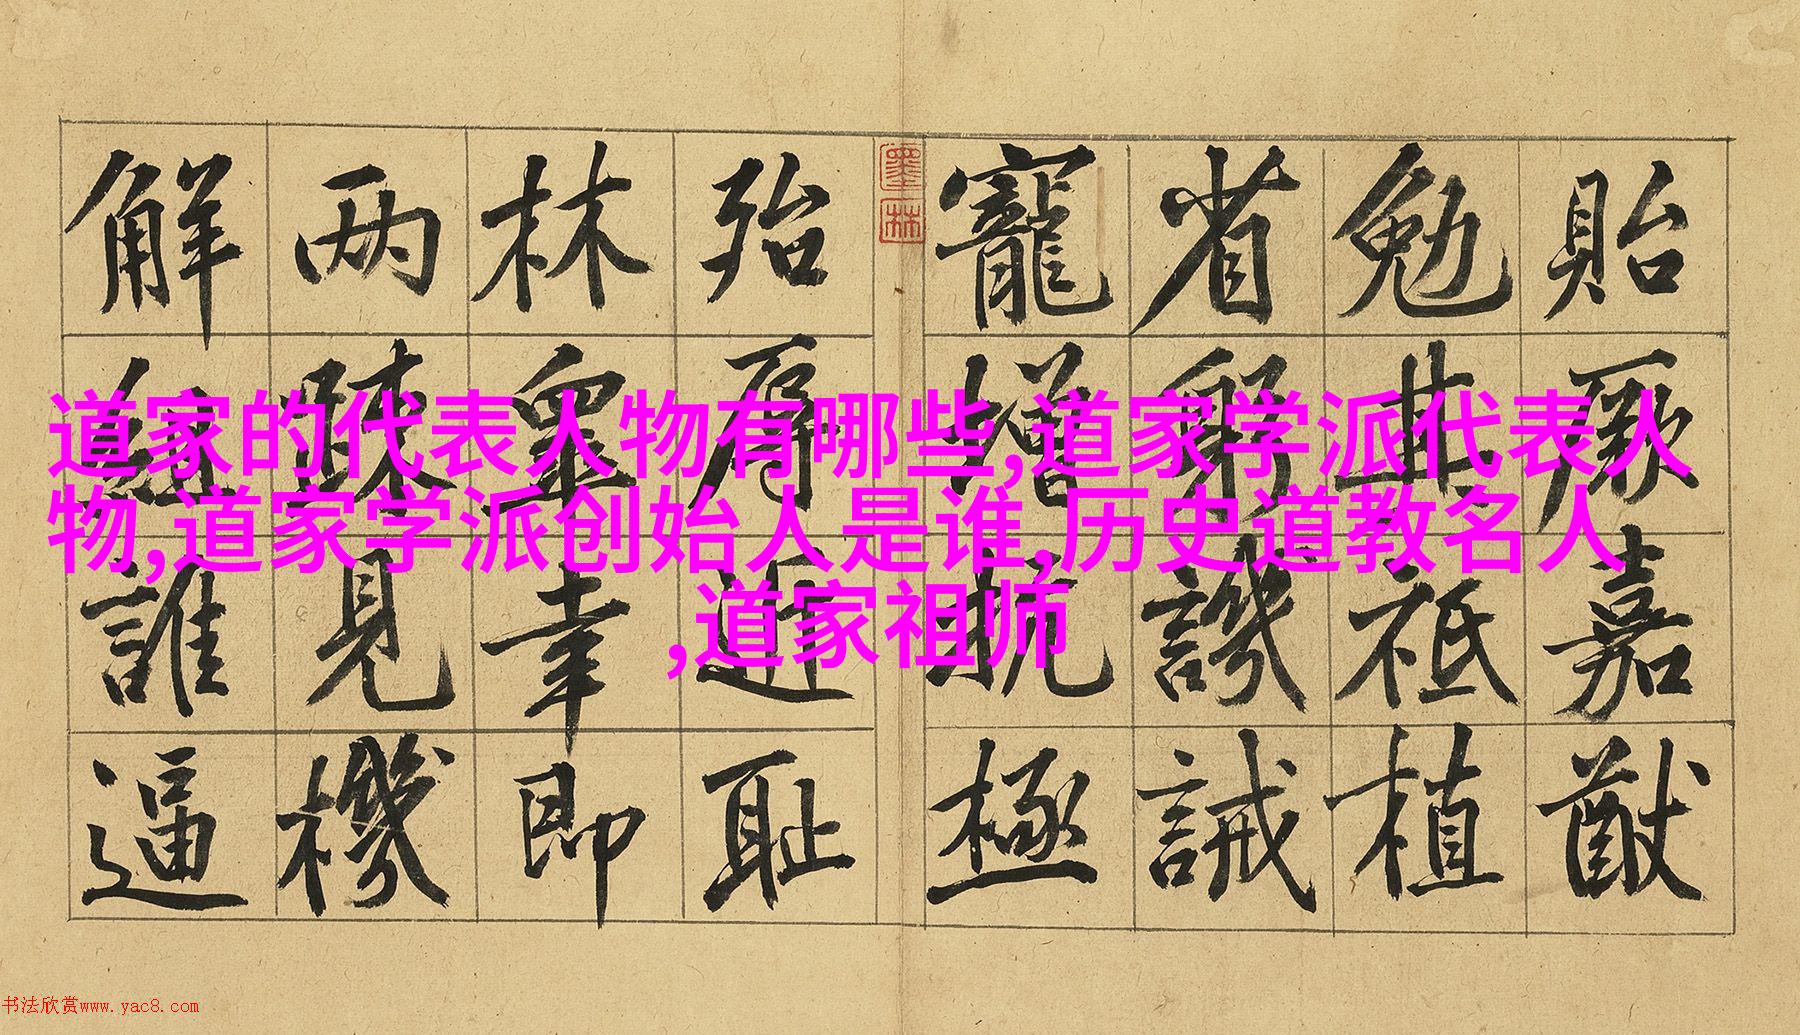 貽厥嘉猷
勉其祗植
省躬譏誡
寵增抗極
墨林
殆辱近耻
林皐幸即
两疎見機
解組誰逼
道家的代表人物有哪些,道家学派代表人
物,道家学派创始人是谁,历史道教名人
,道家祖师
书法欣赏www.yac8.com